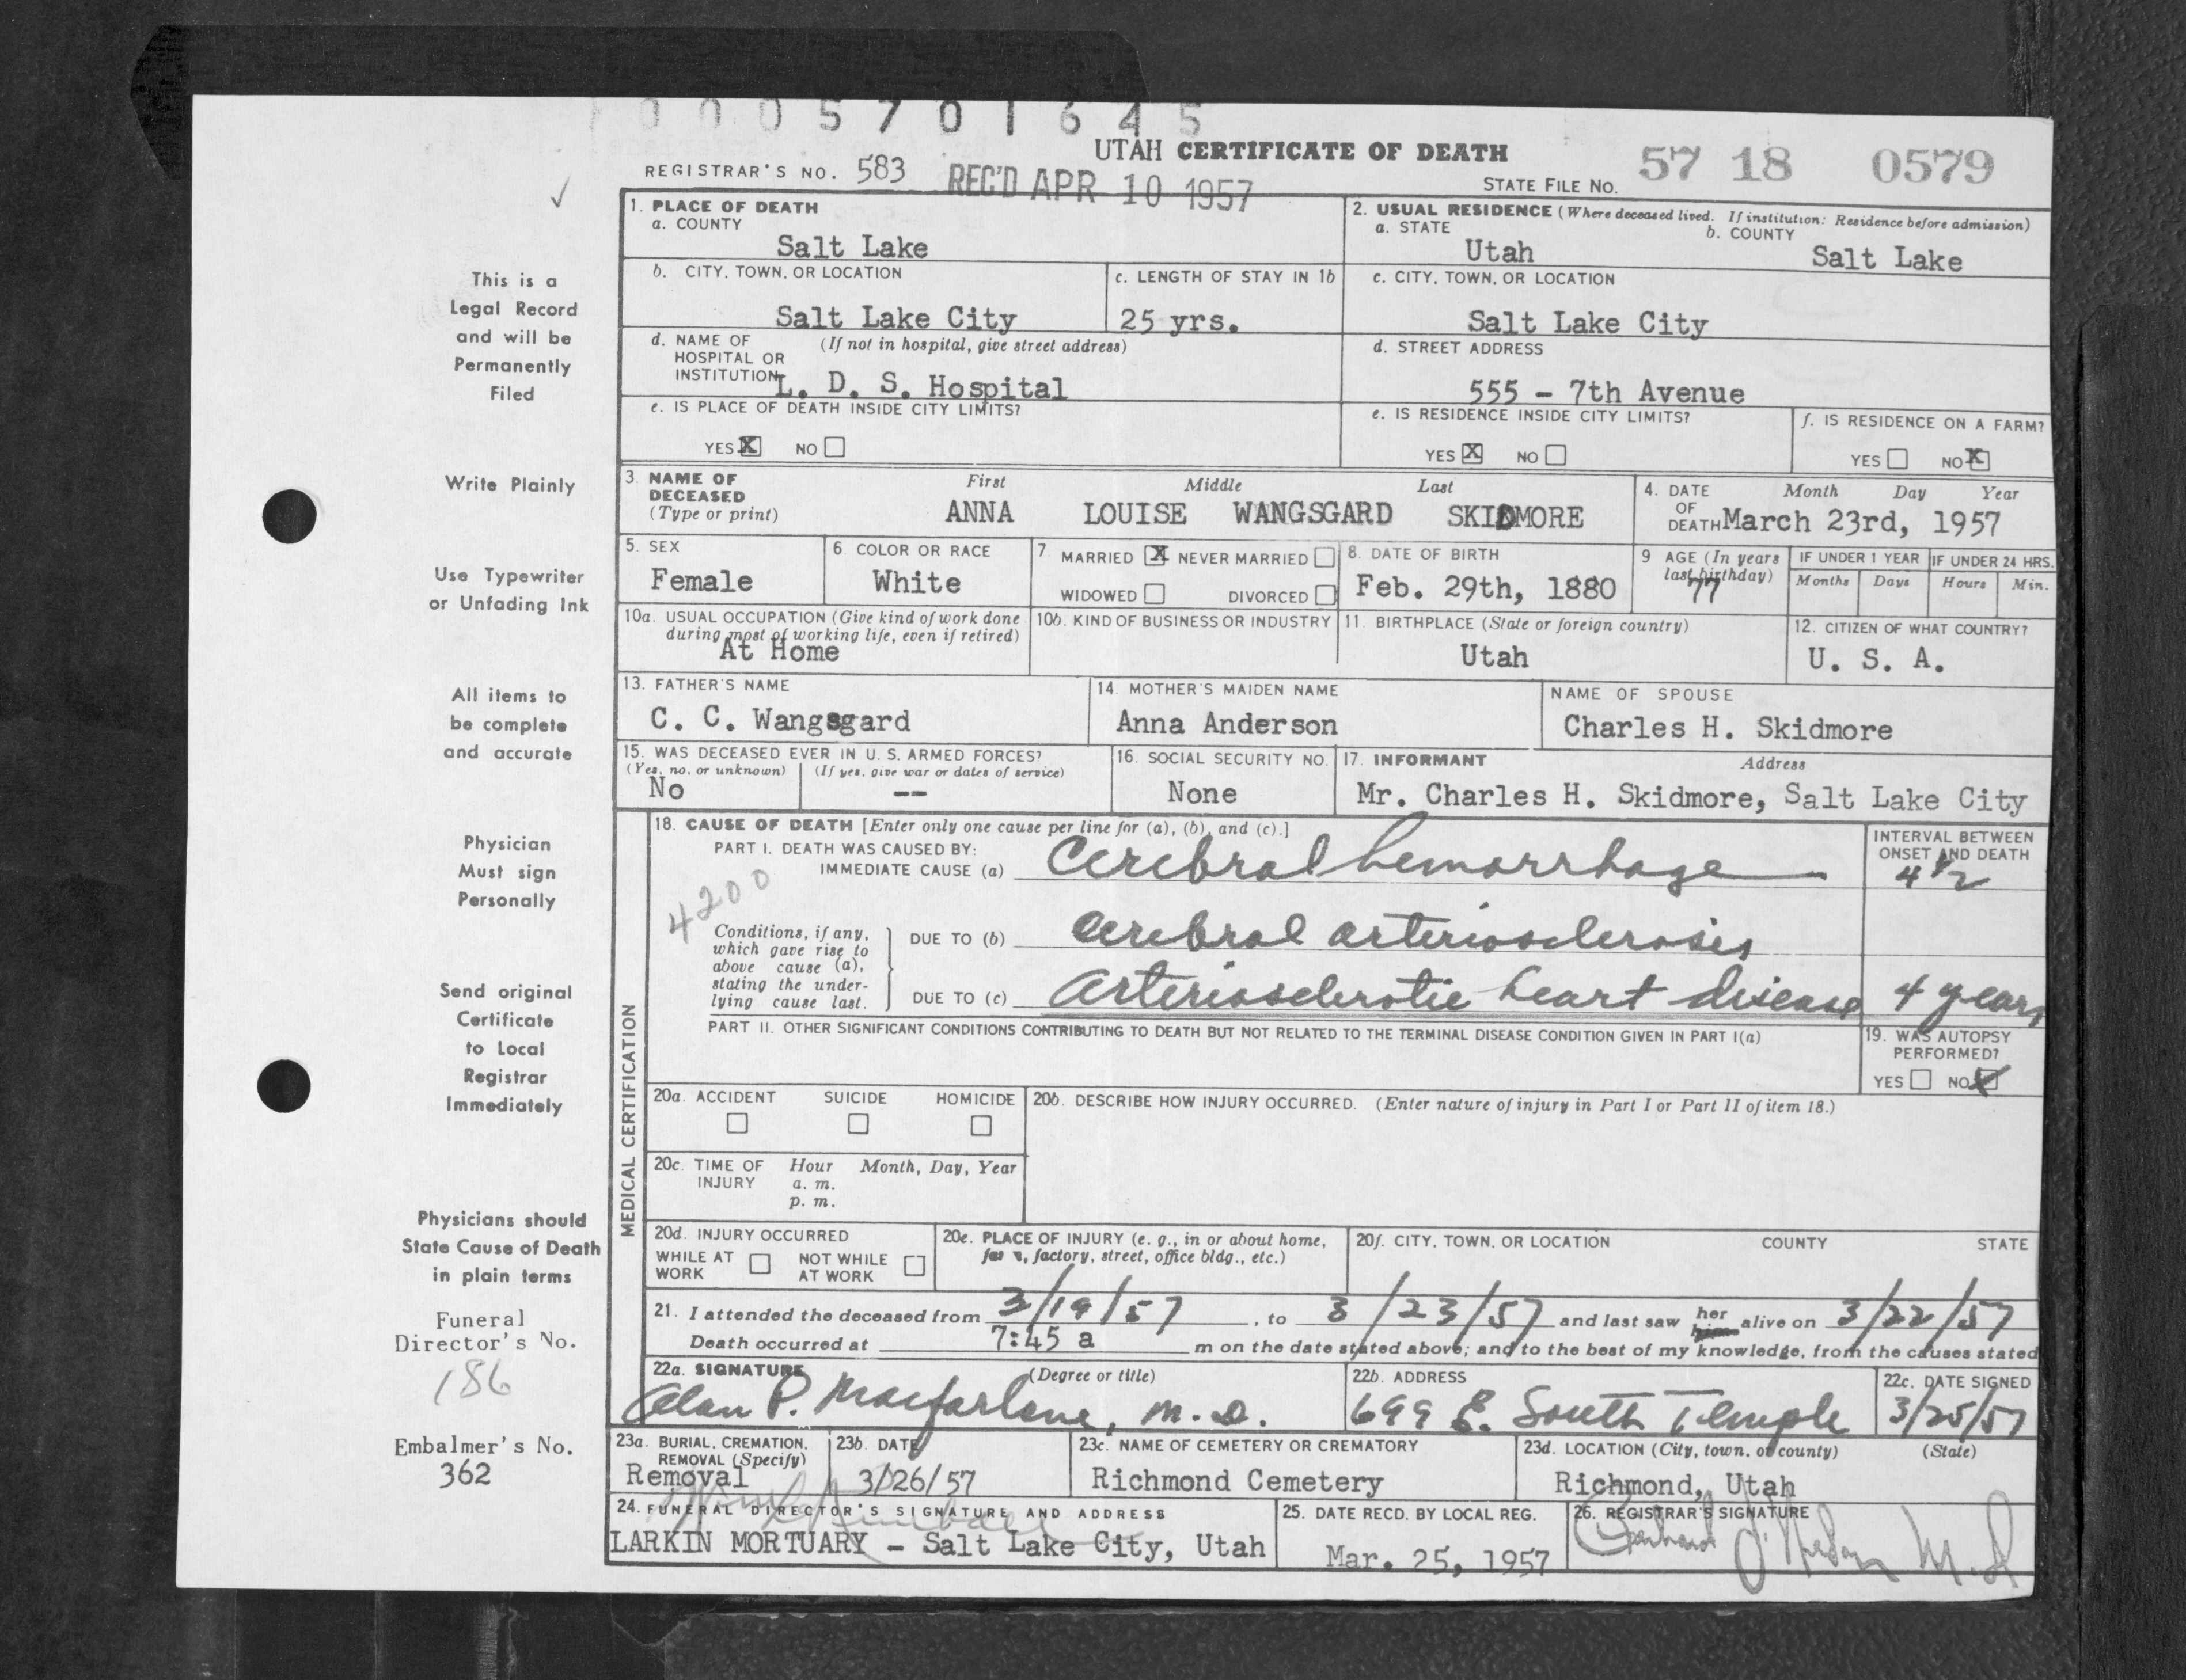 0005701645
UTAH CERTIFICATE OF DEATH
REGISTRAR'S NO. 583 REC'D APR 10 1957 STATE FILE NO. 57 18 0579
1. PLACE OF DEATH
a. COUNTY
Salt Lake
2. USUAL RESIDENCE (Where deceased lived. If institution: Residence before admission)
a. STATE Utah b. COUNTY Salt Lake
b. CITY, TOWN, OR LOCATION
Salt Lake City
c. LENGTH OF STAY IN 1b
25 yrs.
c. CITY, TOWN, OR LOCATION
Salt Lake City
d. NAME OF HOSPITAL OR INSTITUTION (If not in hospital, give street address)
L. D. S. Hospital
d. STREET ADDRESS
555 - 7th Avenue
e. IS PLACE OF DEATH INSIDE CITY LIMITS?
YES X NO
e. IS RESIDENCE INSIDE CITY LIMITS?
YES X NO
f. IS RESIDENCE ON A FARM?
YES NO X
3. NAME OF DECEASED (Type or print)
First Middle Last
ANNA LOUISE WANGSGARD SKIDMORE
4. DATE OF DEATH Month Day Year
March 23rd, 1957
5. SEX
Female
6. COLOR OR RACE
White
7. MARRIED X NEVER MARRIED
WIDOWED DIVORCED
8. DATE OF BIRTH
Feb. 29th, 1880
9. AGE (In years last birthday)
77
IF UNDER 1 YEAR
Months Days
IF UNDER 24 HRS.
Hours Min.
10a. USUAL OCCUPATION (Give kind of work done during most of working life, even if retired)
At Home
10b. KIND OF BUSINESS OR INDUSTRY
11. BIRTHPLACE (State or foreign country)
Utah
12. CITIZEN OF WHAT COUNTRY?
U. S. A.
13. FATHER'S NAME
C. C. Wangsgard
14. MOTHER'S MAIDEN NAME
Anna Anderson
NAME OF SPOUSE
Charles H. Skidmore
15. WAS DECEASED EVER IN U. S. ARMED FORCES?
(Yes, no, or unknown) (If yes, give war or dates of service)
No --
16. SOCIAL SECURITY NO.
None
17. INFORMANT Address
Mr. Charles H. Skidmore, Salt Lake City
MEDICAL CERTIFICATION
18. CAUSE OF DEATH [Enter only one cause per line for (a), (b), and (c).]
PART I. DEATH WAS CAUSED BY:
IMMEDIATE CAUSE (a) Cerebral hemorrhage
INTERVAL BETWEEN ONSET AND DEATH
4 1/2
4200
Conditions, if any, which gave rise to above cause (a), stating the underlying cause last.
DUE TO (b) Cerebral arteriosclerosis
DUE TO (c) Arteriosclerotic heart disease 4 years
PART II. OTHER SIGNIFICANT CONDITIONS CONTRIBUTING TO DEATH BUT NOT RELATED TO THE TERMINAL DISEASE CONDITION GIVEN IN PART I(a)
19. WAS AUTOPSY PERFORMED?
YES NO X
20a. ACCIDENT SUICIDE HOMICIDE
20b. DESCRIBE HOW INJURY OCCURRED. (Enter nature of injury in Part I or Part II of item 18.)
20c. TIME OF INJURY Hour Month, Day, Year
a. m.
p. m.
20d. INJURY OCCURRED
WHILE AT WORK NOT WHILE AT WORK
20e. PLACE OF INJURY (e. g., in or about home, farm, factory, street, office bldg., etc.)
20f. CITY, TOWN, OR LOCATION COUNTY STATE
21. I attended the deceased from 3/19/57, to 3/23/57 and last saw her him alive on 3/22/57
Death occurred at 7:45 a m on the date stated above; and to the best of my knowledge, from the causes stated
22a. SIGNATURE (Degree or title)
Alan P. Macfarlane, M.D.
22b. ADDRESS
699 E. South Temple
22c. DATE SIGNED
3/25/57
23a. BURIAL, CREMATION, REMOVAL (Specify)
Removal
23b. DATE
3/26/57
23c. NAME OF CEMETERY OR CREMATORY
Richmond Cemetery
23d. LOCATION (City, town, or county) (State)
Richmond, Utah
24. FUNERAL DIRECTOR'S SIGNATURE AND ADDRESS
LARKIN MORTUARY - Salt Lake City, Utah
25. DATE RECD. BY LOCAL REG.
Mar. 25, 1957
26. REGISTRAR'S SIGNATURE
M.D.
This is a
Legal Record
and will be
Permanently
Filed
Write Plainly
Use Typewriter
or Unfading Ink
All items to
be complete
and accurate
Physician
Must sign
Personally
Send original
Certificate
to Local
Registrar
Immediately
Physicians should
State Cause of Death
in plain terms
Funeral
Director's No.
186
Embalmer's No.
362